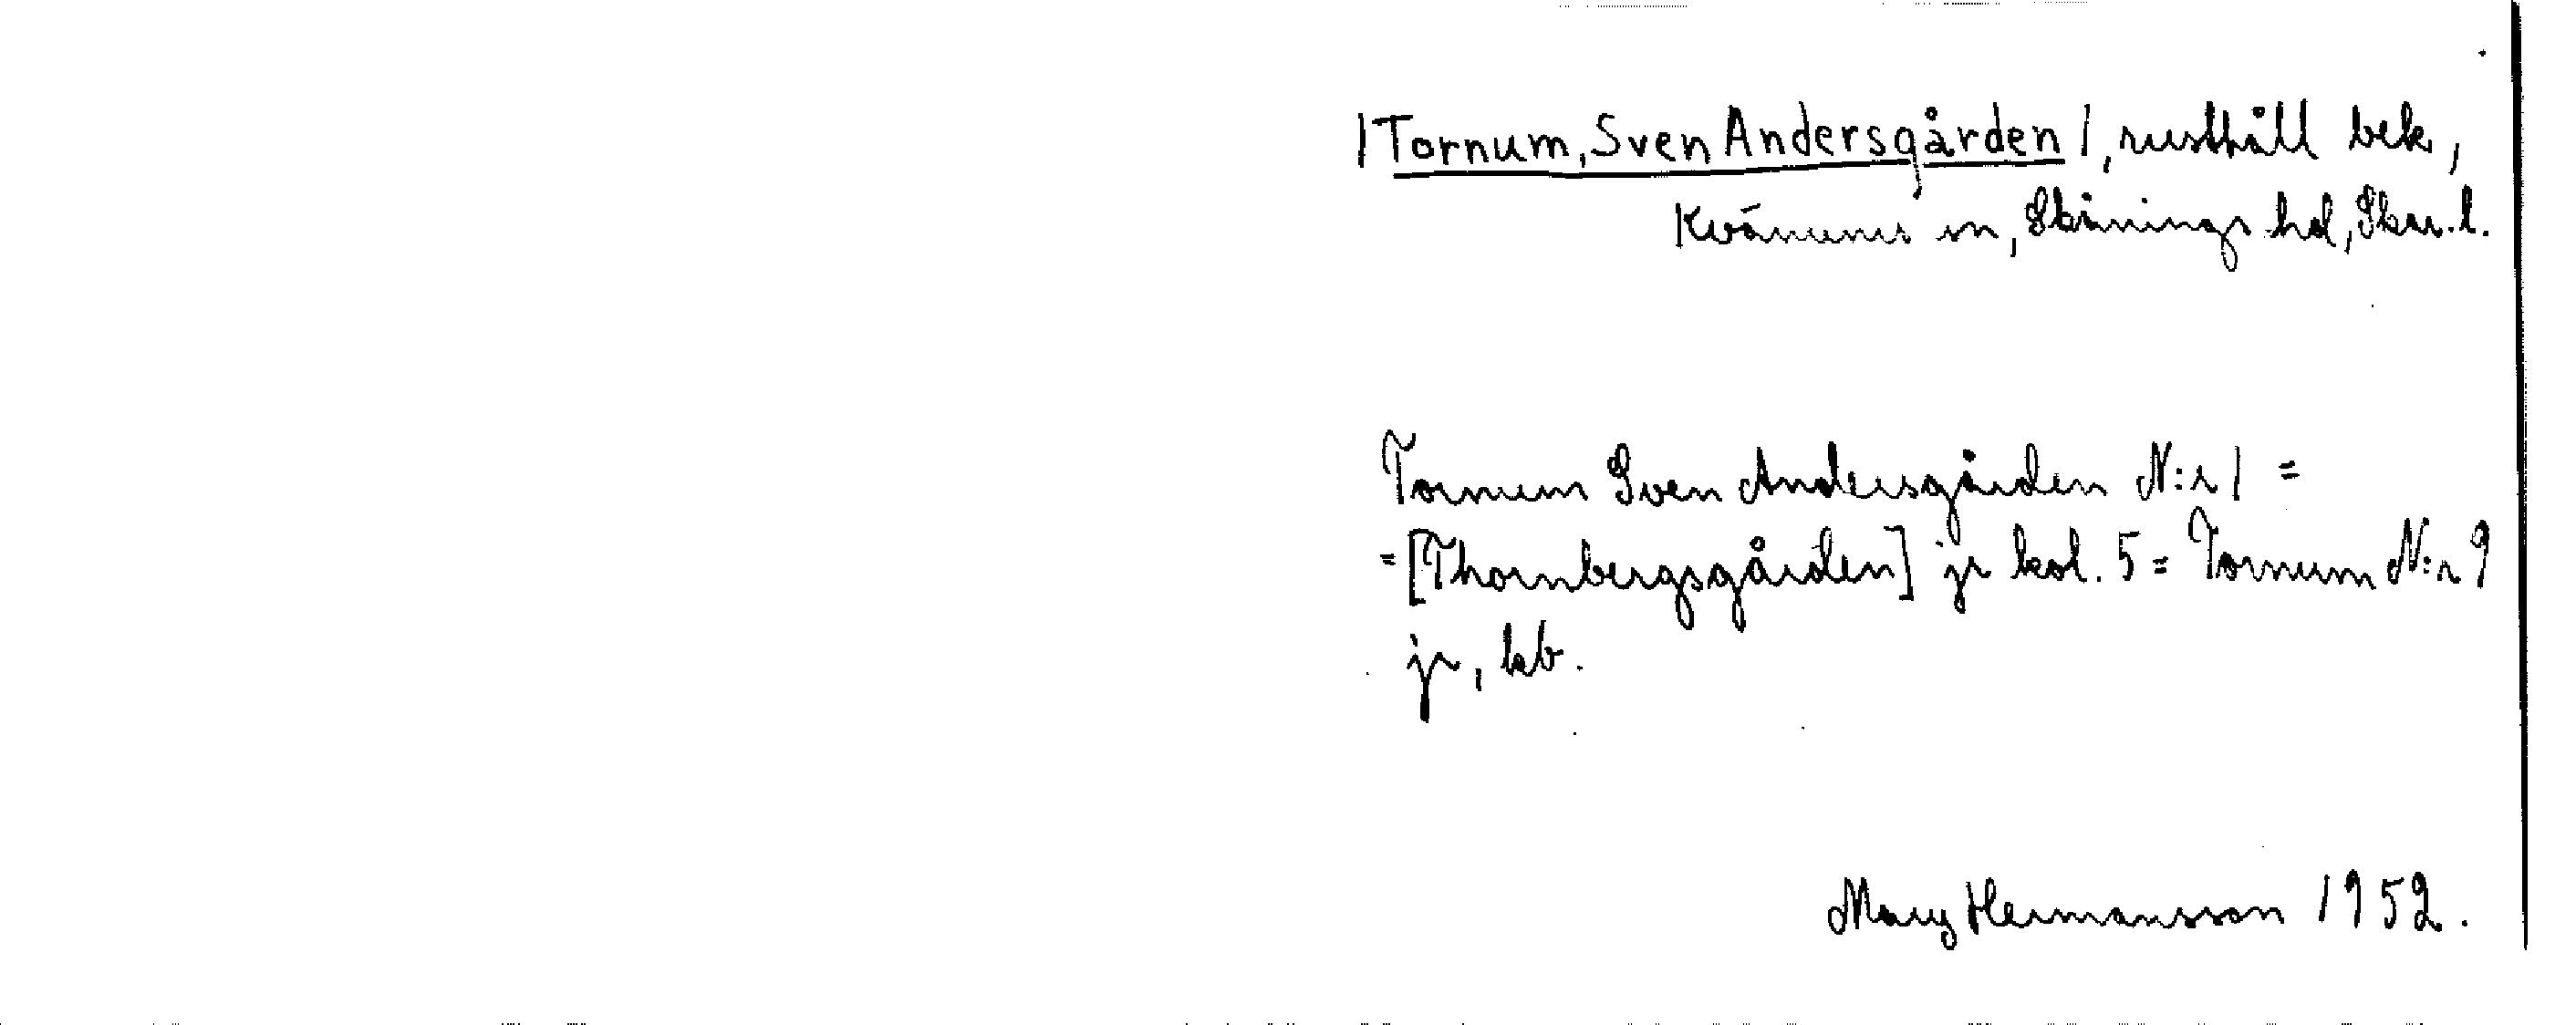 /Tornum, Sven Andersgården/, rusthåll bek,
Kvänums sn, Skånings hd, Skar.l.
Tornum Sven Andersgården N:r 1 =
=[Thornbergsgården] jr kol. 5 = Tornum N:r 9
jr, kb.
Mary Hermansson 1952.